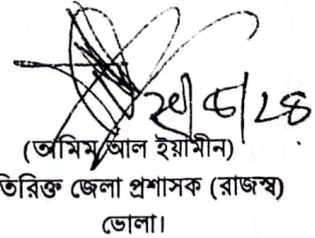 (আমিম আল ইয়ামীন)
তিরিক্ত জেলা প্রশাসক (রাজস্ব)
ভোলা।